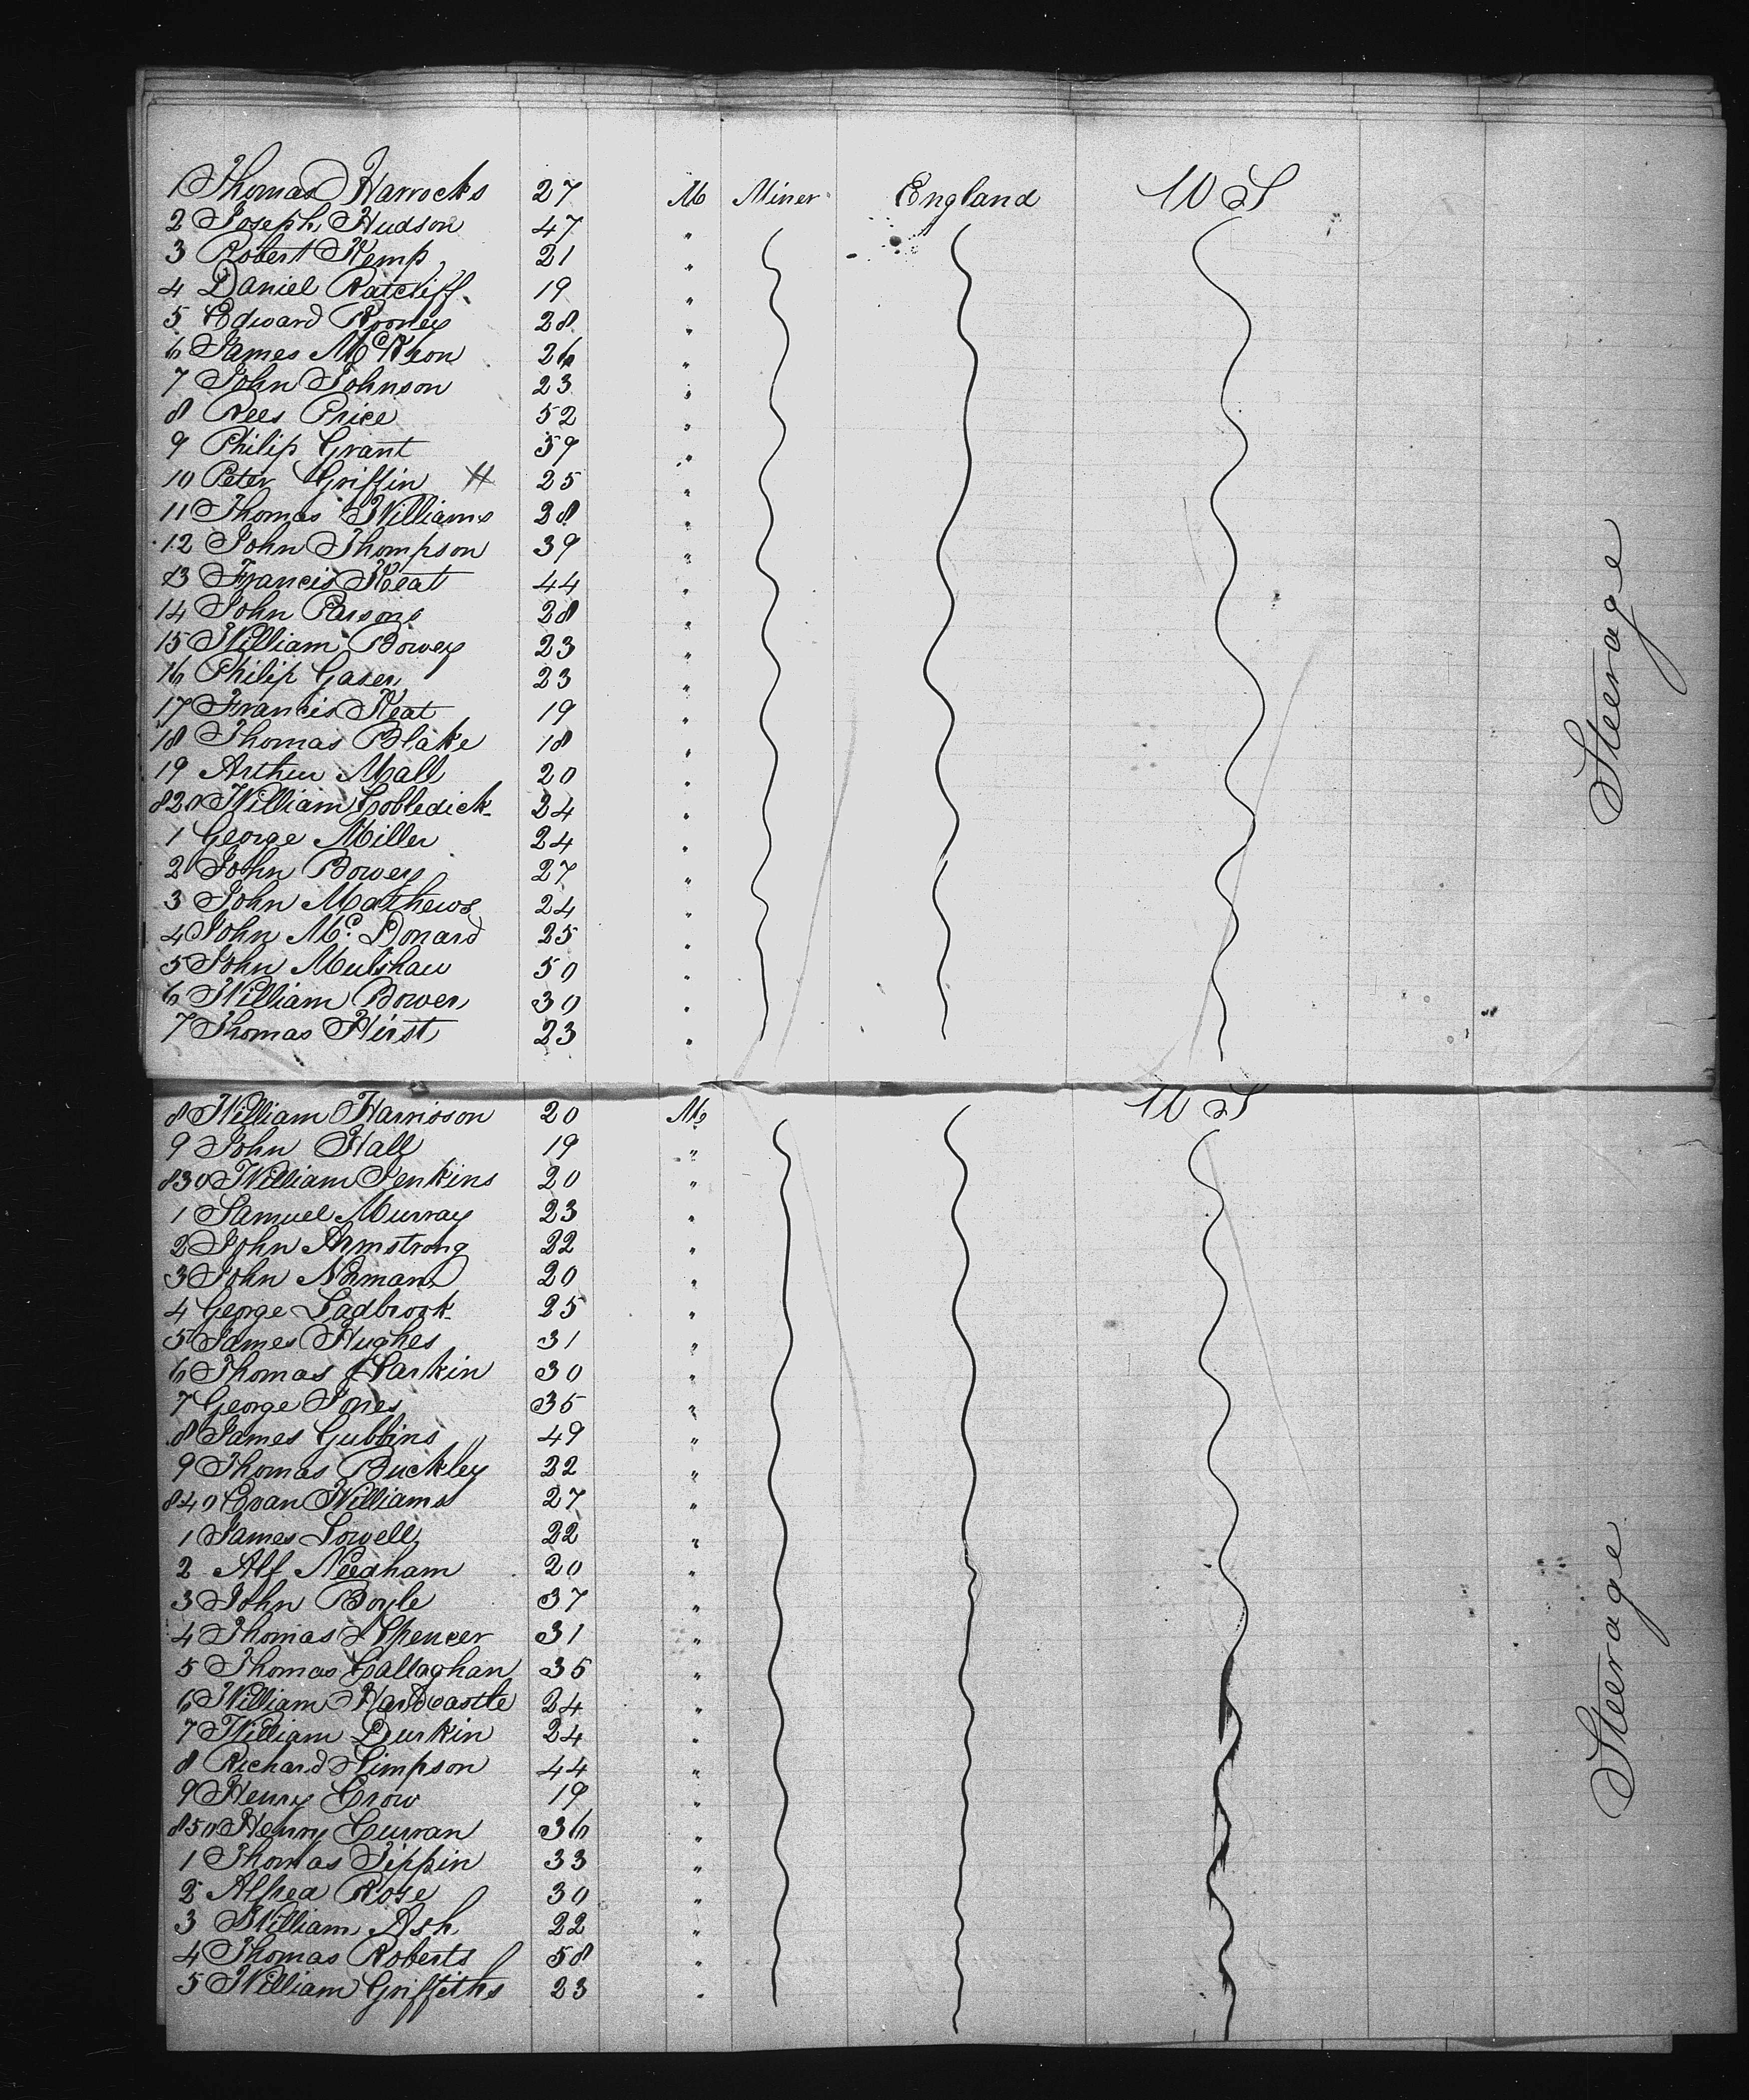 1 Thomas Harrocks 27 M Miner England 10 S
2 Joseph Hudson 47 "
3 Robert Kemp 21 "
4 Daniel Ratcliff 19 "
5 Edward Rooney 28 "
6 James McKeon 26 "
7 John Johnson 23 "
8 Rees Price 52 "
9 Philip Grant 39 "
10 Peter Griffin H 25 "
11 Thomas Williams 28 "
12 John Thompson 39 "
13 Francis Keat 44 "
14 John Parsons 28 "
15 William Bowey 23 "
16 Philip 23 "
17 Francis Keat 19 "
18 Thomas Blake 18 "
19 Arthur Mall 20 "
820 William Cobbledick 24 "
1 George Miller 24 "
2 John Bowey 27 "
3 John Mathews 24 "
4 John Mc. Donard 25 "
5 John Mulshaw 50 "
6 William Bower 30 "
7 Thomas Hirst 23 "
Steerage
8 William Harrisson 20 M 10 S
9 John Hall 19 "
830 William Jenkins 20 "
1 Samuel Murray 23 "
2 John Armstrong 22 "
3 John Norman 20 "
4 George Ladbrook 25 "
5 James Hughes 31 "
6 Thomas Harkin 30 "
7 George Jones 35 "
8 James Gubbins 49 "
9 Thomas Buckley 22 "
840 Evan Williams 27 "
1 James Lowell 22 "
2 Alf Needham 20 "
3 John Boyle 37 "
4 Thomas Spencer 31 "
5 Thomas Callaghan 35 "
6 William Hardcastle 24 "
7 William Durkin 24 "
8 Richard Simpson 44 "
9 Henry Crow 19 "
850 Henry Curran 36 "
1 Thomas Tippin 33 "
2 Alfred Rose 30 "
3 William Ash 22 "
4 Thomas Roberts 58 "
5 William Griffiths 23 "
Steerage